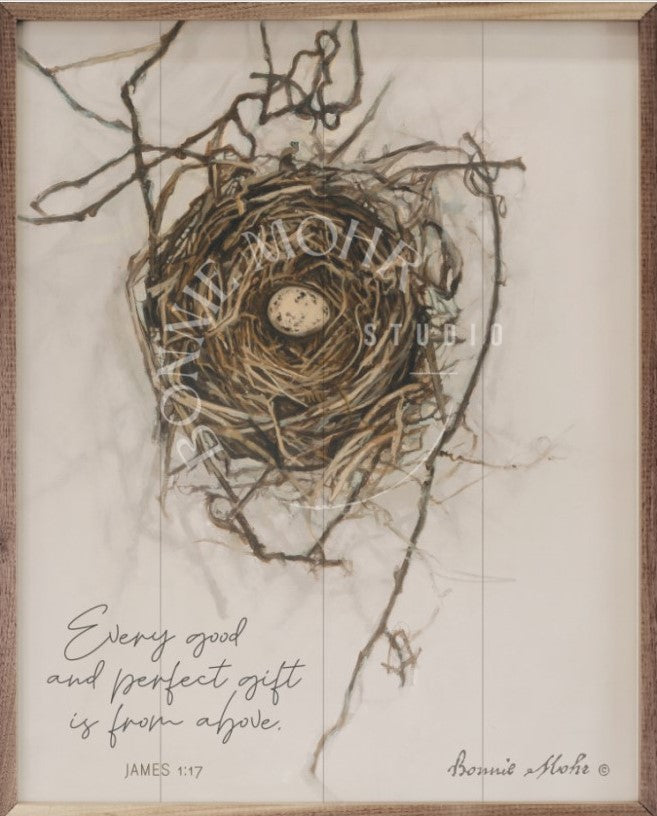 BONNIE MOHR
STUDIO
Every good
and perfect gift
is from above.
JAMES 1:17
Bonnie Mohr ©